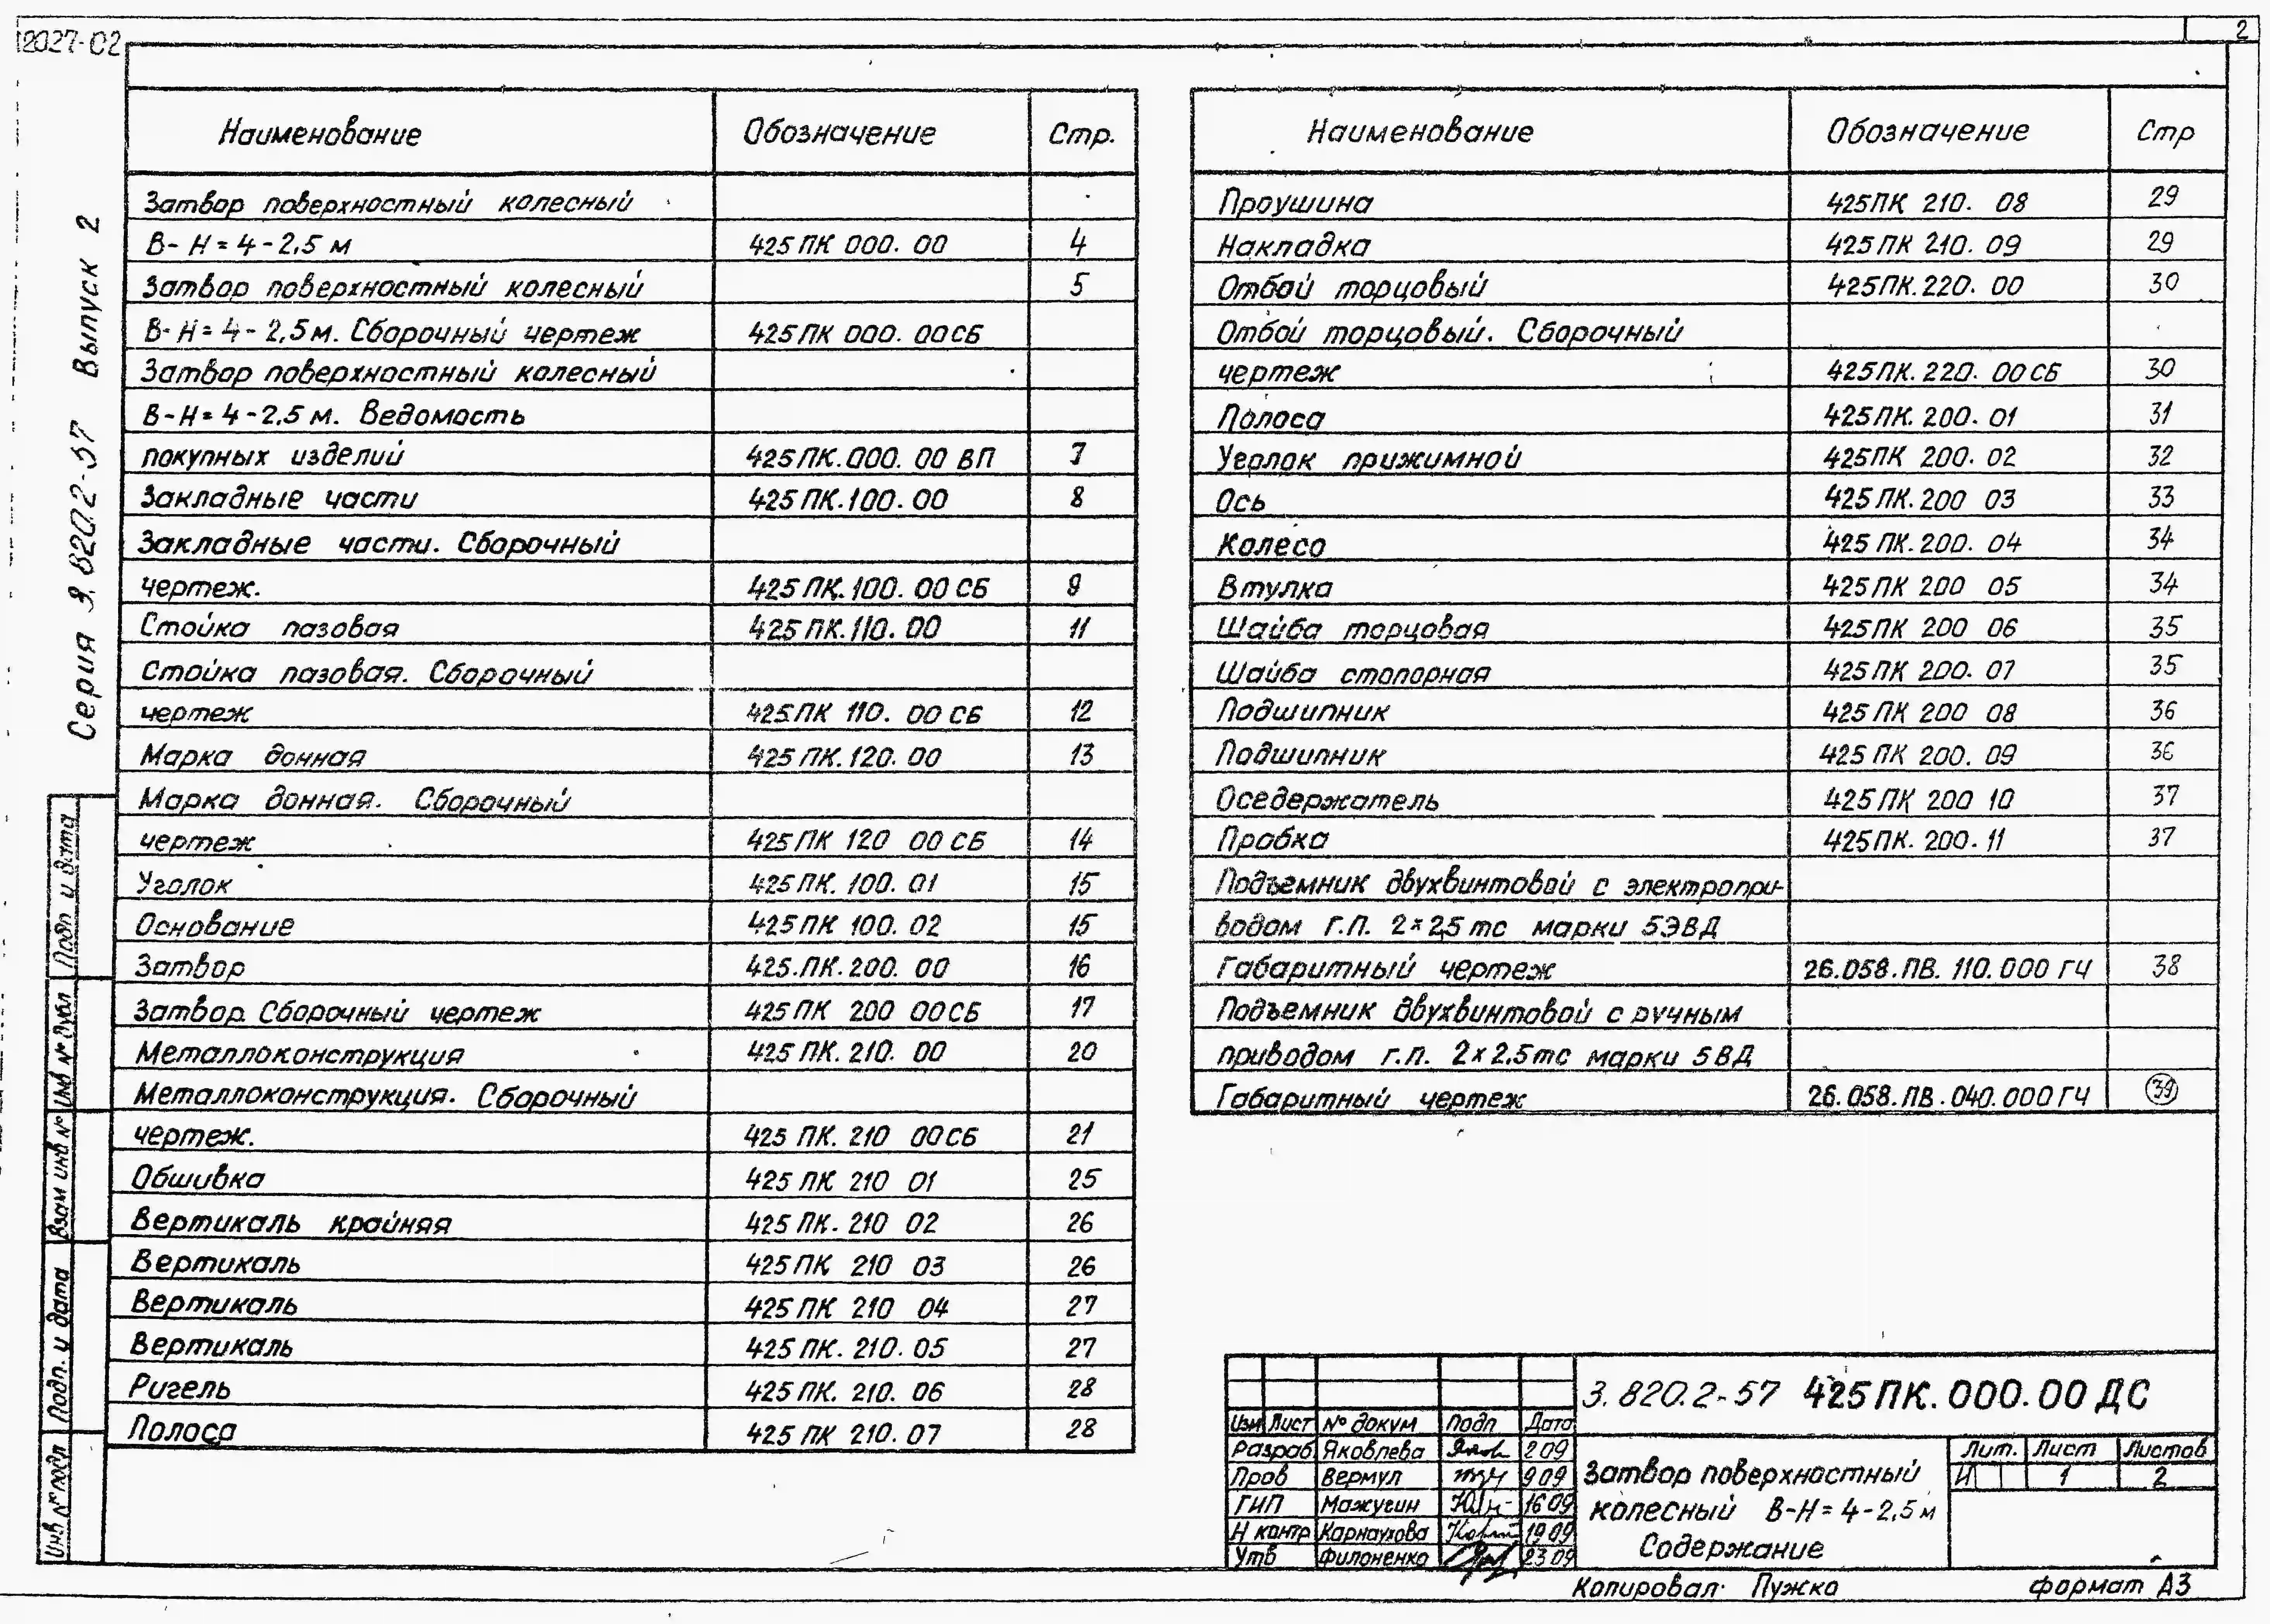 12027-02
2
Серия 3.820.2-57 Выпуск 2
Наименование Обозначение Стр.
Затвор поверхностный колесный
В-Н=4-2,5 м 425ПК 000. 00 4
Затвор поверхностный колесный 5
В-Н=4-2,5м. Сборочный чертеж 425ПК 000. 00СБ
Затвор поверхностный колесный
В-Н=4-2,5 м. Ведомость
покупных изделий 425ПК.000. 00 ВП 7
Закладные части 425ПК.100. 00 8
Закладные части. Сборочный
чертеж. 425ПК.100. 00СБ 9
Стойка пазовая 425ПК.110. 00 11
Стойка пазовая. Сборочный
чертеж 425ПК 110. 00СБ 12
Марка донная 425ПК.120. 00 13
Марка донная. Сборочный
чертеж 425ПК 120 00СБ 14
Уголок 425ПК. 100. 01 15
Основание 425ПК 100. 02 15
Затвор 425.ПК.200. 00 16
Затвор. Сборочный чертеж 425ПК 200 00СБ 17
Металлоконструкция 425ПК.210. 00 20
Металлоконструкция. Сборочный
чертеж. 425 ПК. 210 00СБ 21
Обшивка 425 ПК 210 01 25
Вертикаль крайняя 425ПК. 210 02 26
Вертикаль 425ПК 210 03 26
Вертикаль 425ПК 210 04 27
Вертикаль 425ПК. 210. 05 27
Ригель 425ПК. 210. 06 28
Полоса 425 ПК 210. 07 28
Наименование Обозначение Стр
Проушина 425ПК 210. 08 29
Накладка 425ПК 210. 09 29
Отбой торцовый 425ПК.220. 00 30
Отбой торцовый. Сборочный
чертеж 425ПК. 220. 00СБ 30
Полоса 425ПК. 200. 01 31
Уголок прижимной 425ПК 200. 02 32
Ось 425ПК.200 03 33
Колесо 425ПК.200. 04 34
Втулка 425ПК 200 05 34
Шайба торцовая 425ПК 200 06 35
Шайба стопорная 425ПК 200. 07 35
Подшипник 425ПК 200 08 36
Подшипник 425 ПК 200. 09 36
Оседержатель 425ПК 200 10 37
Пробка 425ПК. 200. 11 37
Подъемник двухвинтовой с электропри-
водом Г.П. 2×2,5 тс марки 5ЭВД
Габаритный чертеж 26.058.ПВ. 110.000 ГЧ 38
Подъемник двухвинтовой с ручным
приводом г.п. 2×2.5тс марки 5ВД
Габаритный чертеж 26.058.ПВ.040.000ГЧ 39
Подп и дата
Инв № дубл
Взам инв №
Подп. и дата
Инв № подл
3.820.2-57 425ПК.000.00ДС
Изм Лист № докум Подп Дата
Разраб Яковлева 2 09
Пров Вермул 9 09
ГИП Мажугин 16 09
Н контр Карнаухова 19 09
Утв Филоненко 23 09
Затвор поверхностный
колесный В-Н=4-2,5м
Содержание
Лит. Лист Листов
И 1 2
Копировал: Пужко формат А3